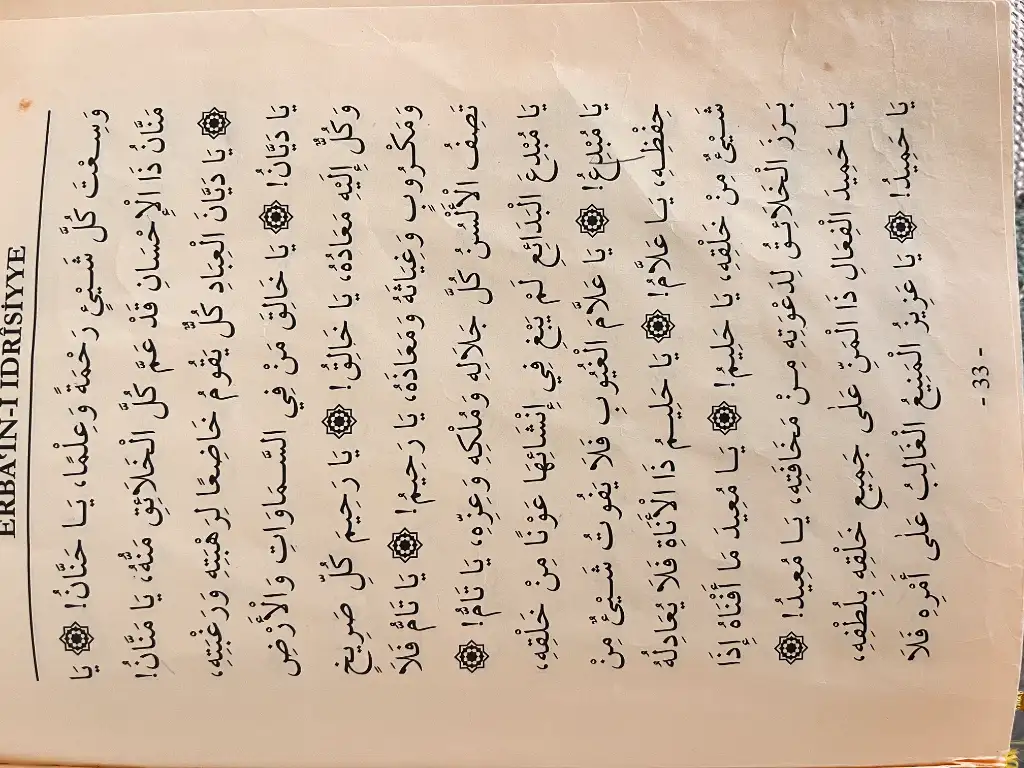 ERBA'IN-I İDRÎSİYYE
وَسِعْتَ كُلَّ شَيْئٍ رَحْمَةً وَعِلْمًا، يَا حَنَّانُ! ۞ يَا
مَنَّانُ ذَا الْإِحْسَانِ قَدْ عَمَّ كُلَّ الْخَلَائِقِ مَنُّهُ، يَا مَنَّانُ!
۞ يَا دَيَّانَ الْعِبَادِ كُلٌّ يَقُومُ خَاضِعًا لِرَهْبَتِهِ وَرَغْبَتِهِ،
يَا دَيَّانُ! ۞ يَا خَالِقَ مَنْ فِي السَّمَاوَاتِ وَالْأَرْضِ
وَكُلٌّ إِلَيْهِ مَعَادُهُ، يَا خَالِقُ! ۞ يَا رَحِيمَ كُلِّ صَرِيخٍ
وَمَكْرُوبٍ وَغِيَاثَهُ وَمَعَاذَهُ، يَا رَحِيمُ! ۞ يَا تَامُّ فَلَا
تَصِفُ الْأَلْسُنُ كُلَّ جَلَالِهِ وَمُلْكِهِ وَعِزِّهِ، يَا تَامُّ! ۞
يَا مُبْدِعَ الْبَدَائِعِ لَمْ يَبْغِ فِي إِنْشَائِهَا عَوْنًا مِنْ خَلْقِهِ،
يَا مُبْدِعُ! ۞ يَا عَلَّامَ الْغُيُوبِ فَلَا يَفُوتُ شَيْئٌ مِنْ
حِفْظِهِ، يَا عَلَّامُ! ۞ يَا حَلِيمُ ذَا الْأَنَاةِ فَلَا يُعَادِلُهُ
شَيْئٌ مِنْ خَلْقِهِ، يَا حَلِيمُ! ۞ يَا مُعِيدَ مَا أَفْنَاهُ إِذَا
بَرَزَ الْخَلَائِقُ لِدَعْوَتِهِ مِنْ مَخَافَتِهِ، يَا مُعِيدُ! ۞
يَا حَمِيدَ الْفِعَالِ ذَا الْمَنِّ عَلَى جَمِيعِ خَلْقِهِ بِلُطْفِهِ،
يَا حَمِيدُ! ۞ يَا عَزِيزُ الْمَنِيعُ الْغَالِبُ عَلَى أَمْرِهِ فَلَا
- 33 -